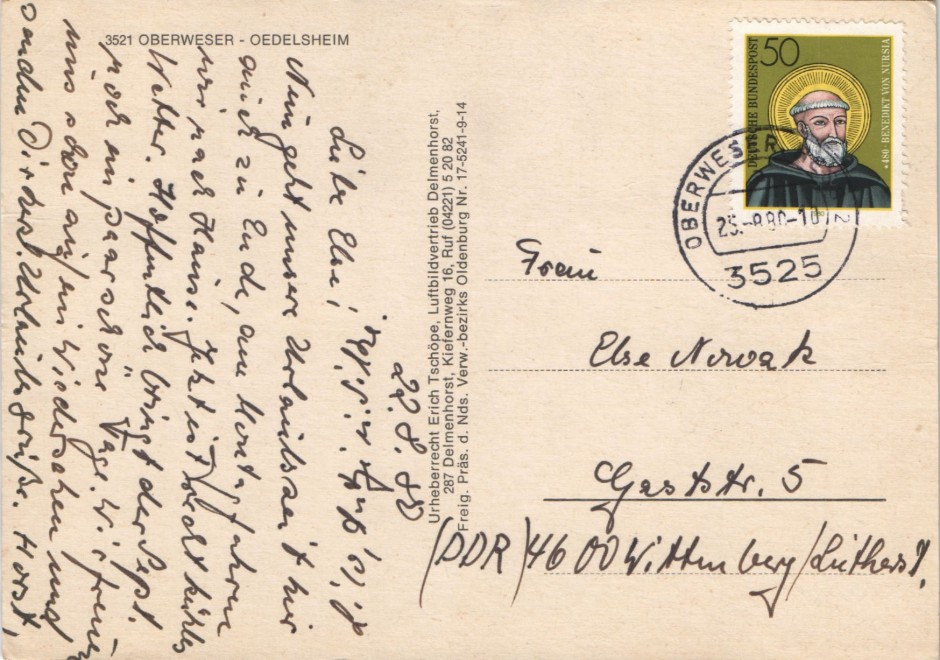 3521 OBERWESER - OEDELSHEIM
22.8.80
Liebe Else,
Nun geht unsere Urlaubszeit hier
auch zu Ende, am Montag fahren
wir nach Hause. Jetzt ist recht kühles
Wetter. Hoffentlich bringt der Sept.
noch ein paar schöne Tage. Wir freuen
uns schon auf ein Wiedersehen und
senden Dir herzl. Urlaubsgrüße. Horst,
Urheberrecht Erich Tschöpe, Luftbildvertrieb Delmenhorst,
287 Delmenhorst, Kiefernweg 16, Ruf (04221) 5 20 82
Freig. Präs. d. Nds. Verw.-bezirks Oldenburg Nr. 17-5241-9-14
50
DEUTSCHE BUNDESPOST
*480 · BENEDIKT VON NURSIA
OBERWESER
25.-8.80-10
3525
Frau
Else Nowak
Gaststr. 5
(DDR) 4600 Wittenberg/Lutherst.